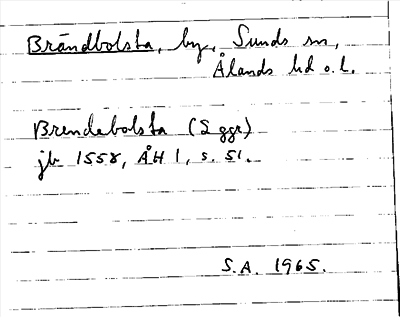 Brändbolsta, by, Sunds sn,
Ålands hd o. l.
Brendebolsta (2 ggr)
jb 1558, ÅH 1, s. 51.
S.A. 1965.